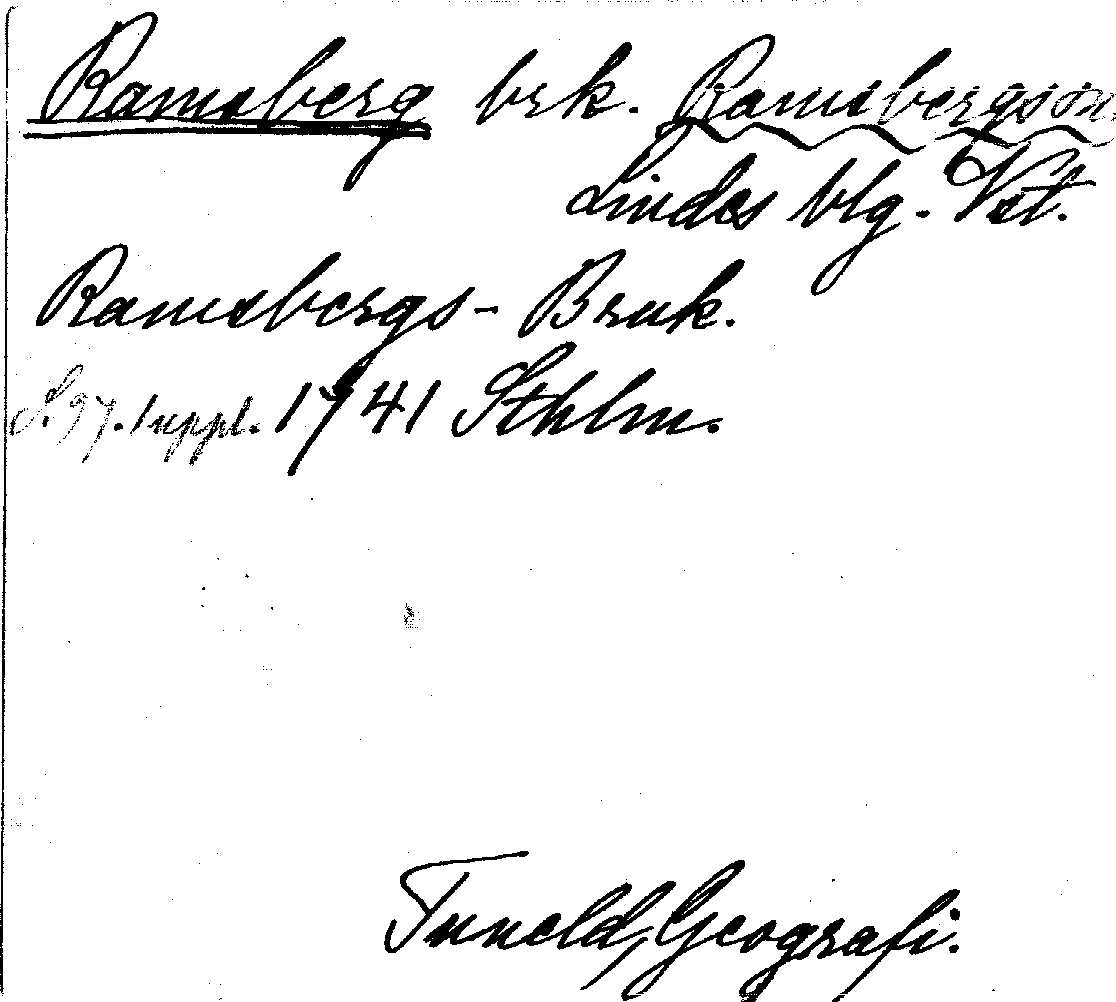 Ramsberg brk. Ramsbergs sn.
Lindes blg. Vst.
Ramsbergs-Bruk.
S. 97. suppl. 1741 Sthlm.
Tuneld, Geografi.